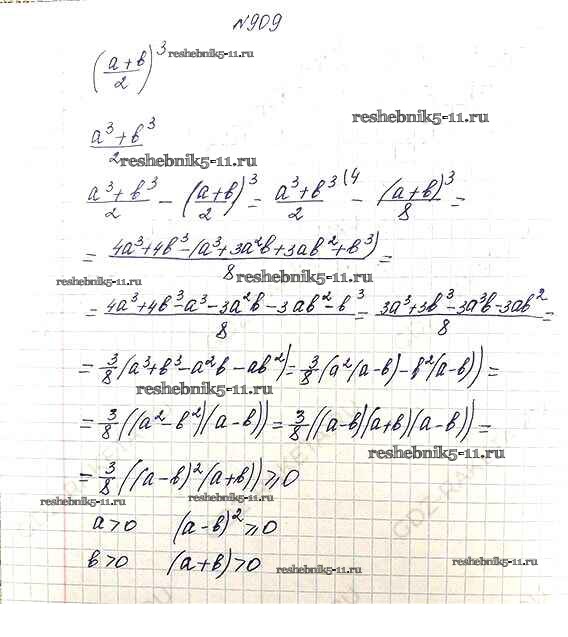 №909
((a+b)/2)^3 reshebnik5-11.ru
reshebnik5-11.ru
(a^3+b^3)/2
reshebnik5-11.ru
(a^3+b^3)/2 - ((a+b)/2)^3 = (a^3+b^3)/2 (4 - (a+b)^3/8 =
= (4a^3+4b^3-(a^3+3a^2b+3ab^2+b^3))/8 =
reshebnik5-11.ru reshebnik5-11.ru
= (4a^3+4b^3-a^3-3a^2b-3ab^2-b^3)/8 = (3a^3+3b^3-3a^3b-3ab^2)/8 =
= 3/8 (a^3+b^3-a^2b-ab^2) = 3/8 (a^2(a-b)-b^2(a-b)) =
reshebnik5-11.ru
= 3/8 ((a^2-b^2)(a-b)) = 3/8 ((a-b)(a+b)(a-b)) =
reshebnik5-11.ru
= 3/8 ((a-b)^2(a+b)) ⩾ 0
reshebnik5-11.ru reshebnik5-11.ru
a>0 (a-b)^2 ⩾ 0
b>0 (a+b)>0 reshebnik5-11.ru reshebnik5-11.ru